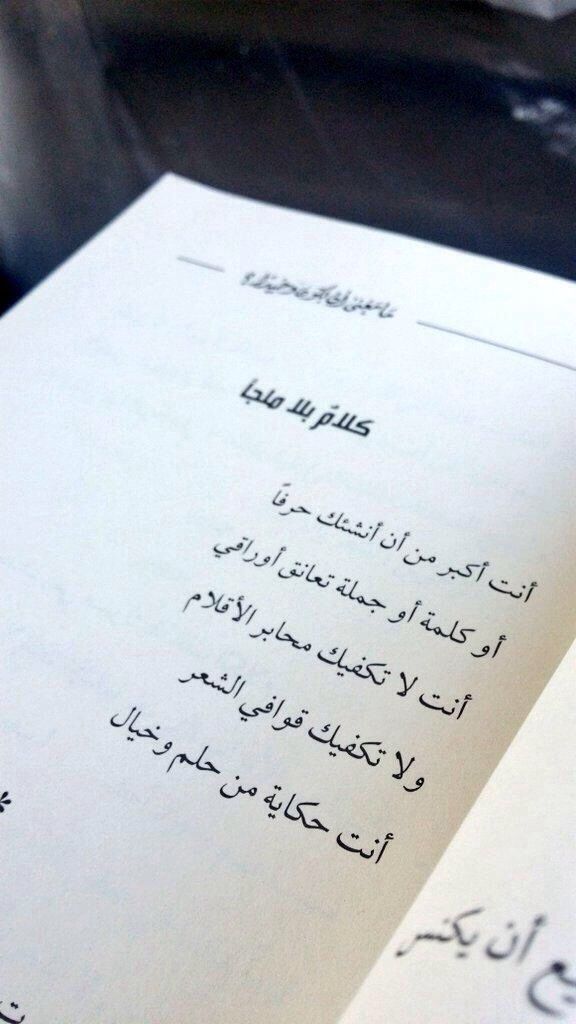 ما معنى أن أكون وحيدًا؟
كلامٌ بلا ملجأ
أنت أكبر من أن أنشئك حرفًا
أو كلمة أو جملة تعانق أوراقي
أنت لا تكفيك محابر الأقلام
ولا تكفيك قوافي الشعر
أنت حكاية من حلم وخيال
أن يكنس